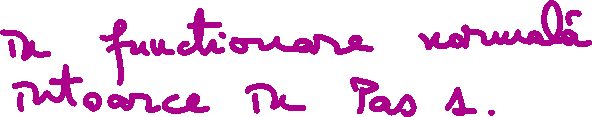 în funcționare normală
întoarce în Pas 1.